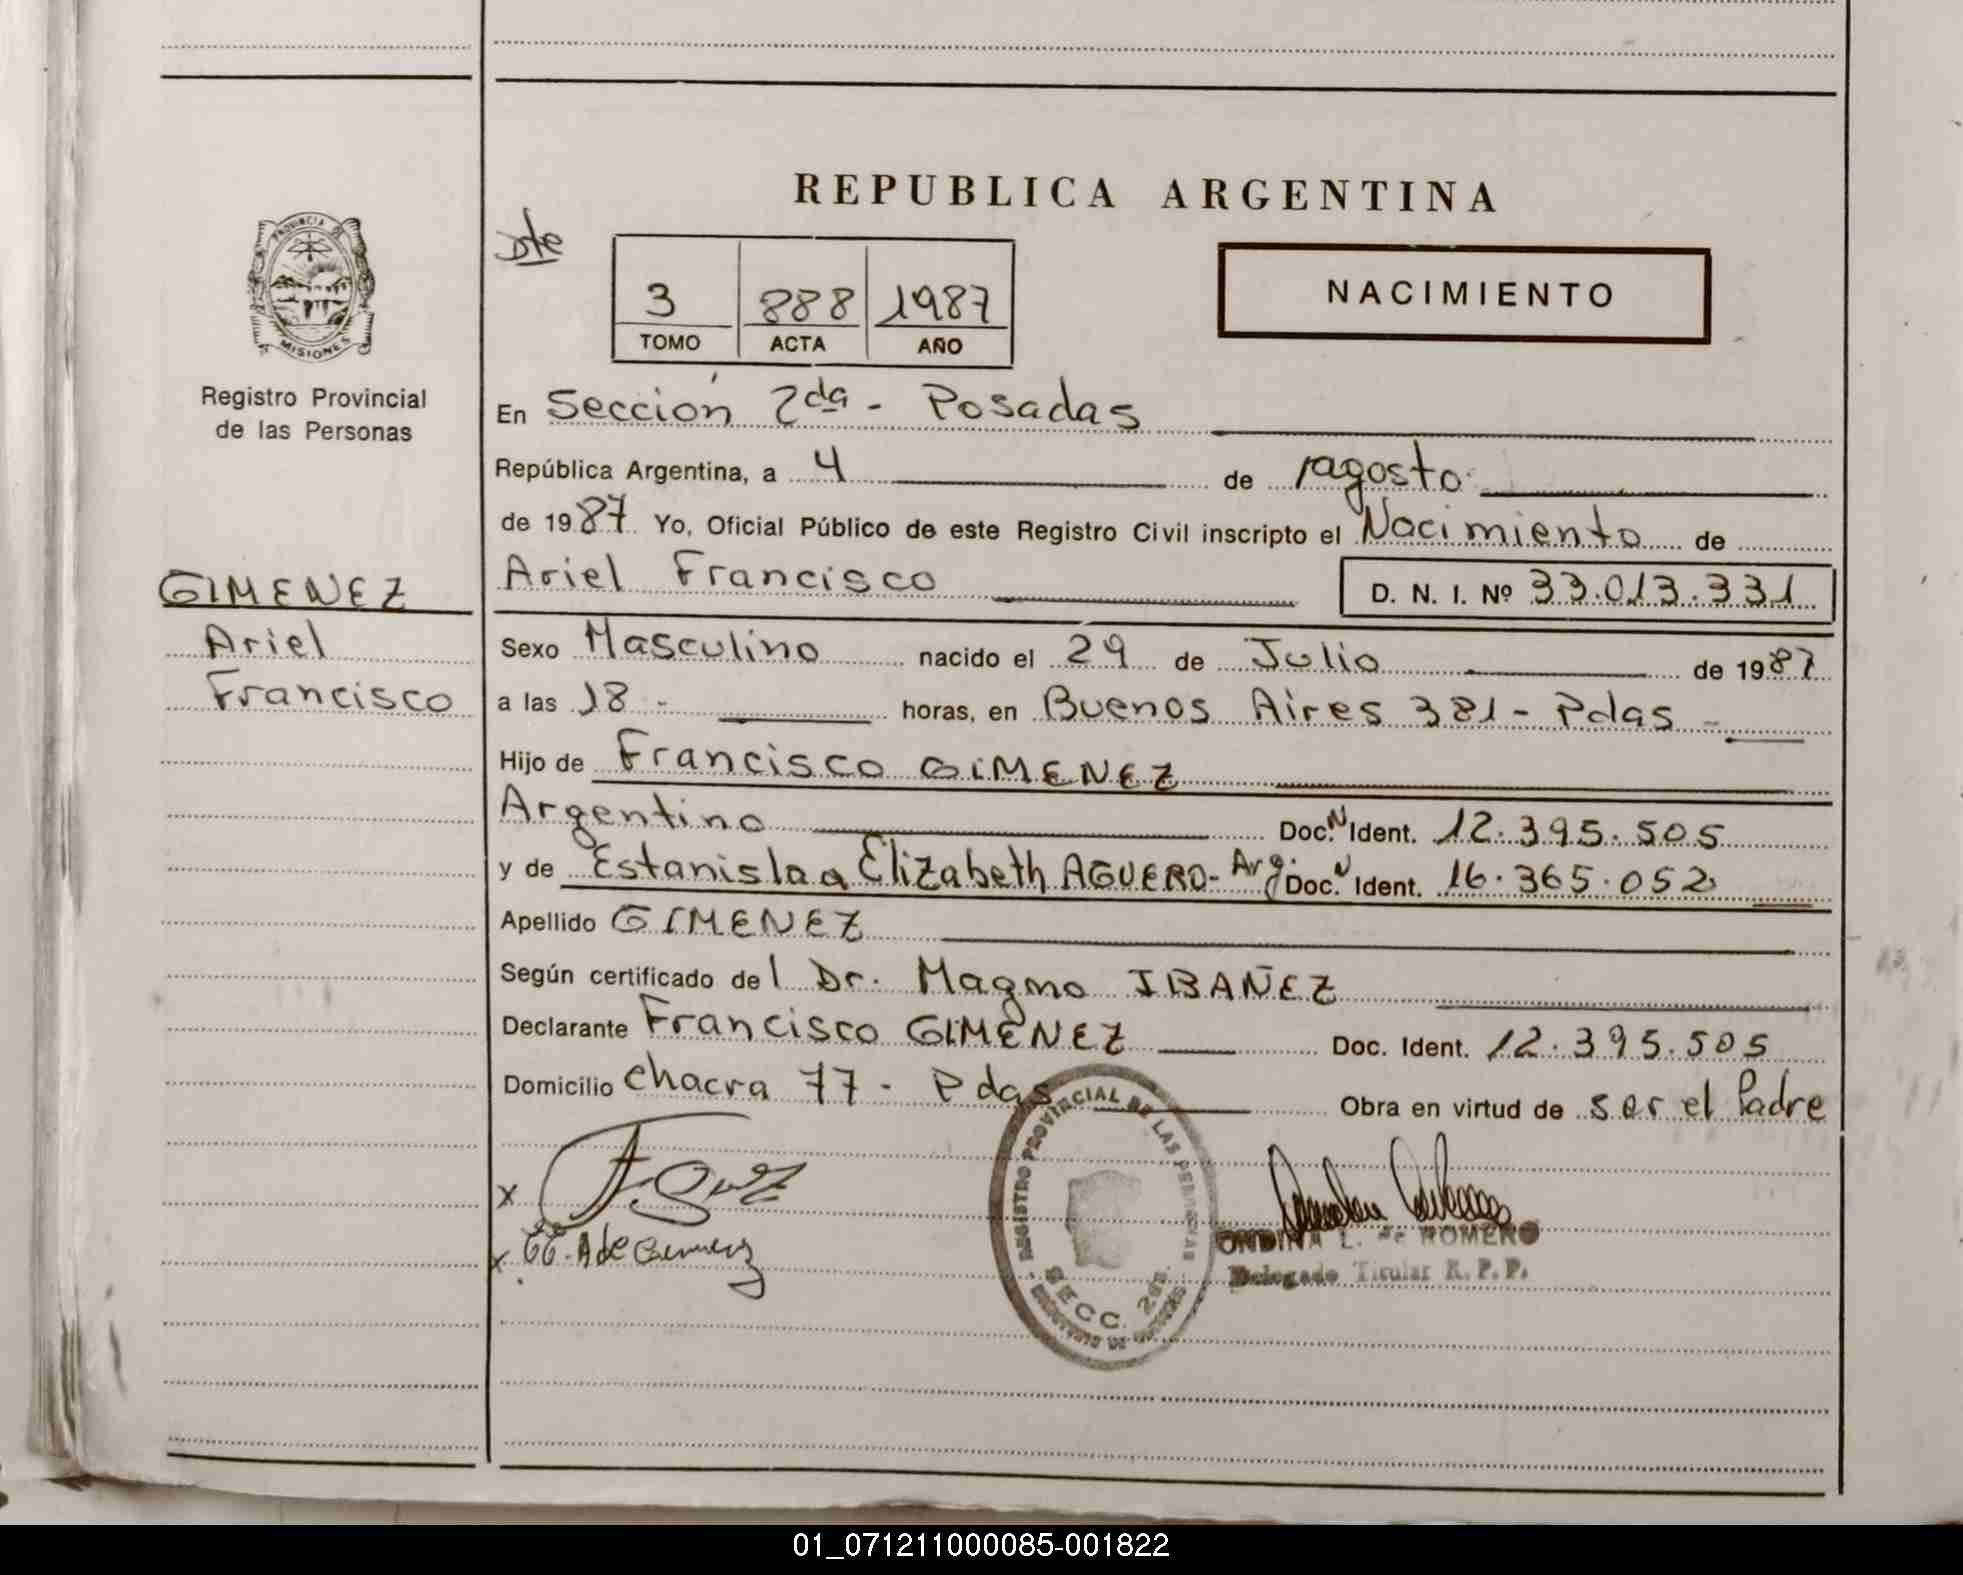 REPUBLICA ARGENTINA
Dte
3 888 1987
TOMO ACTA AÑO
NACIMIENTO
PROVINCIA DE MISIONES
Registro Provincial
de las Personas
GIMENEZ
Ariel
Francisco
En Sección 2da - Posadas
República Argentina, a 4 de agosto
de 1987 Yo, Oficial Público de este Registro Civil inscripto el Nacimiento de
Ariel Francisco D. N. I. Nº 33.013.331
Sexo Masculino nacido el 29 de Julio de 1987
a las 18 - horas, en Buenos Aires 381 - Pdas -
Hijo de Francisco GIMENEZ
Argentino Doc. N Ident. 12.395.505
y de Estanislaa Elizabeth AGUERO - Arg. Doc. N Ident. 16.365.052
Apellido GIMENEZ
Según certificado del Dr. Magno IBAÑEZ
Declarante Francisco GIMENEZ Doc. Ident. 12.395.505
Domicilio chacra 77 - Pdas Obra en virtud de ser el Padre
REGISTRO PROVINCIAL DE LAS PERSONAS
SECC. 2da
x
x E E. A de Gimenez
ONDINA L. de ROMERO
Delegado Titular R. P. P.
01_071211000085-001822